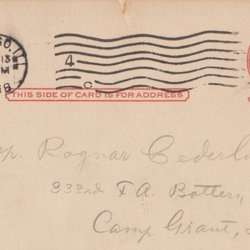 GO, I
13
M
18
4
THIS SIDE OF CARD IS FOR ADDRESS
Ragnar Cederl
333rd F.A. Battery
Camp Grant,